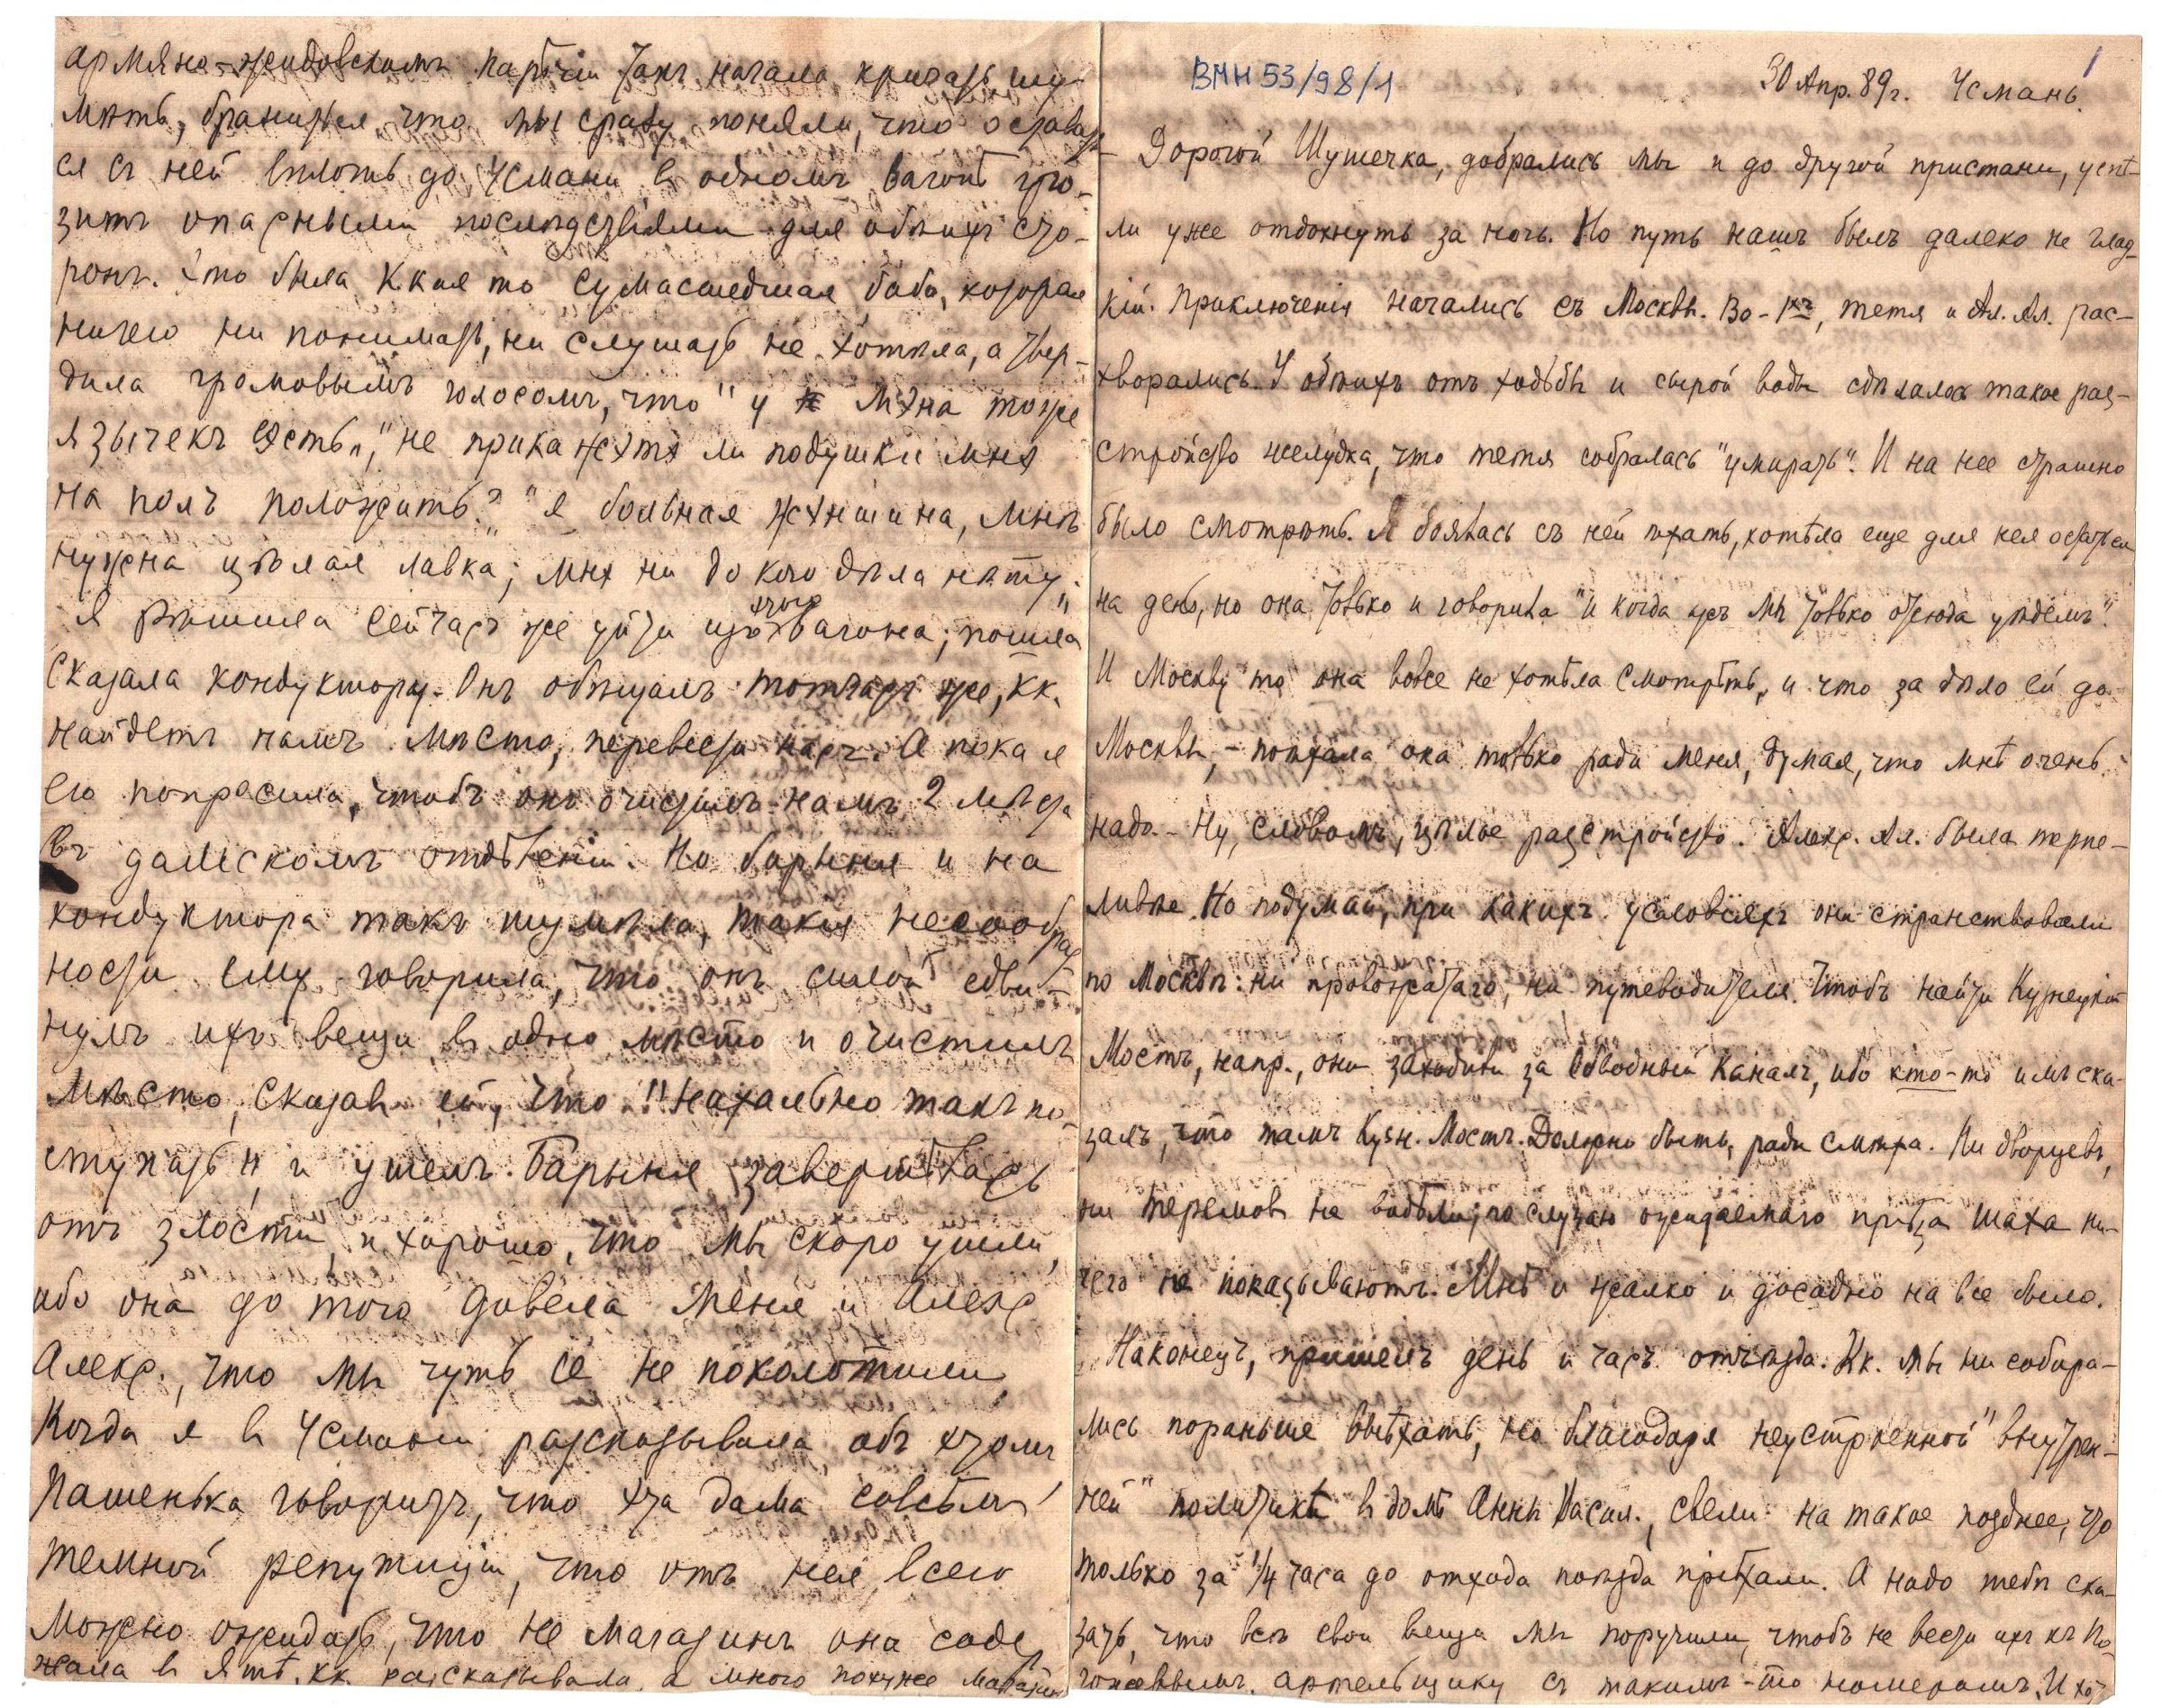 ВМН 53/98/1
1
30 Апр. 89 г. Усмань.
Дорогой Шушечка, добрались мы и до другой пристани, успѣ-
ли уже отдохнуть за ночь. Но путь нашъ былъ далеко не глад-
кій. Приключенія начались съ Москвы. Во-1хъ, тетя и Ал. Ал. рас-
хворались. У обѣихъ отъ ходьбы и сырой воды сдѣлалось такое раз-
стройство желудка, что тетя собралась "умирать". И на нее страшно
было смотрѣть. Я боялась съ ней ѣхать, хотѣла еще для нея остаться
на день, но она только и говорила "и когда ужъ мы только отсюда уѣдемъ".
И Москву то она вовсе не хотѣла смотрѣть, и что за дѣло ей до
Москвы, – поѣхала она только ради меня, думая, что мнѣ очень
надо. – Ну, словомъ, цѣлое разстройство. Алекс. Ал. была терпе-
ливѣе. Но подумай, при какихъ условіяхъ они странствовали
по Москвѣ: ни провожатаго, ни путеводителя. Чтобъ найти Кузнецкій
Мостъ, напр., они заходили за Обводный Каналъ, ибо кто-то имъ ска-
залъ, что тамъ Кузн. Мостъ. Должно быть, ради смѣха. Ни дворцевъ,
ни теремовъ не видѣли; по случаю ожидаемаго пріѣзда шаха ни-
чего не показываютъ. Мнѣ и жалко и досадно на все было.
Наконецъ, пришелъ день и часъ отъѣзда. Кк. мы ни собира-
лись пораньше выѣхать, но благодаря неустроенной "внутрен-
ней" политикѣ въ домѣ Анны Васил., свели на такое позднее, что
только за 1/4 часа до отхода поѣзда пріѣхали. А надо тебѣ ска-
зать, что всѣ свои вещи мы поручили, чтобъ не везти ихъ къ По-
артельщику съ такимъ-то номеромъ. И хо-
армяно-жидовскимъ нарѣчіи такъ начала кричать, шу-
мѣть, браниться, что мы сразу поняли, что оставать-
ся съ ней вплоть до Усмани въ одномъ вагонѣ гро-
зитъ опасными послѣдствіями для обѣихъ сто-
ронъ. Это была Ккая то сумасшедшая баба, которая
ничего ни понимать, ни слушать не хотѣла, а твер-
дила громовымъ голосомъ, что "у мэна тоже
язычекъ есть", "не прикажэтэ ли подушки мнэ
на полъ положить?" "я больная жэншина, мнѣ
нужна цѣлая лавка; мнэ ни до кого дѣла нэту",
Я рѣшила сейчасъ же уйти изъ этого вагона; пошла
сказала кондуктору. Онъ обѣщалъ тотчасъ же, кк.
найдетъ намъ мѣсто, перевести насъ. А пока я
его попросила, чтобъ онъ очистилъ намъ 2 мѣста
въ дамскомъ отдѣленіи. Но барыня и на
кондуктора такъ шумѣла, такія несообраз
ности ему говорила, что онъ силой сдви-
нулъ ихъ вещи въ одно мѣсто и очистилъ
мѣсто, сказавъ ей, что "нахально такъ по-
ступать", и ушелъ. Барыня завертѣлась
отъ злости, и хорошо, что мы скоро ушли,
ибо она до того довела меня и Алекс
Алекс., что мы чуть ее не поколотили.
Когда я въ Усмани разсказывала объ этомъ
Пашенька говоритъ, что эта дама совсѣмъ
темной репутаціи, что отъ нея всего
можно ожидать, что не магазинъ она содер
жала въ Ялтѣ, кк. разсказывала, а много похуже магазина